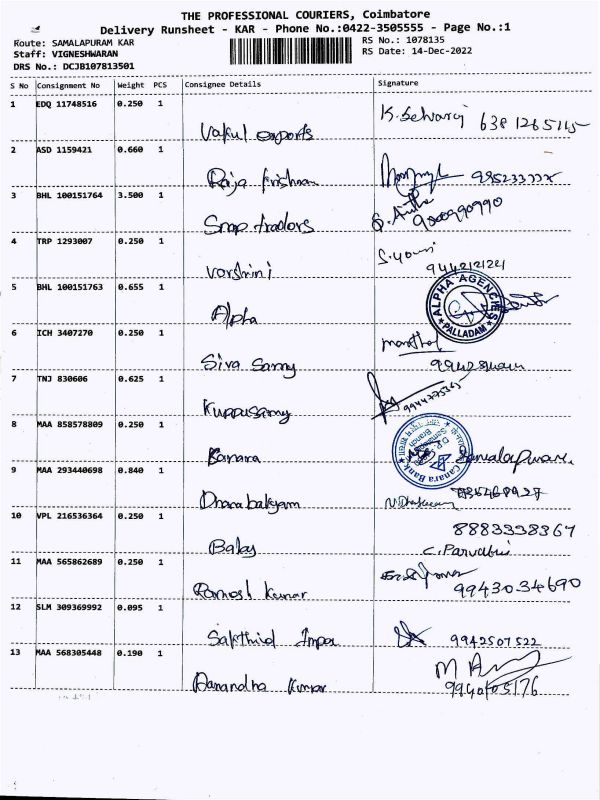 THE PROFESSIONAL COURIERS, Coimbatore
Delivery Runsheet - KAR - Phone No.:0422-3505555 - Page No.:1
Route: SAMALAPURAM KAR RS No.: 1078135
Staff: VIGNESHWARAN RS Date: 14-Dec-2022
DRS No.: DCJB107813501
S No Consignment No Weight PCS Consignee Details Signature
1 EDQ 11748516 0.250 1
Vakul exports K. Selvaraj
2 ASD 1159421 0.660 1
Raja Krishnan
3 BHL 100151764 3.500 1
Snap tradors
4 TRP 1293007 0.250 1
varshini
5 BHL 100151763 0.655 1
Alpha ALPHA AGENCIES PALLADAM
6 ICH 3407270 0.250 1
Siva Samy
7 TNJ 830606 0.625 1
Kuppusamy
8 MAA 858578809 0.250 1
Kanara Canara Bank
9 MAA 293440698 0.840 1
Dhanabakyam
10 VPL 216536364 0.250 1 8883338367
Balaji C. Parvathi
11 MAA 565862689 0.250 1
Ramesh Kumar 9943034690
12 SLM 309369992 0.095 1
Sakthivel 9942507522
13 MAA 568305448 0.190 1
Aanandha Kumar